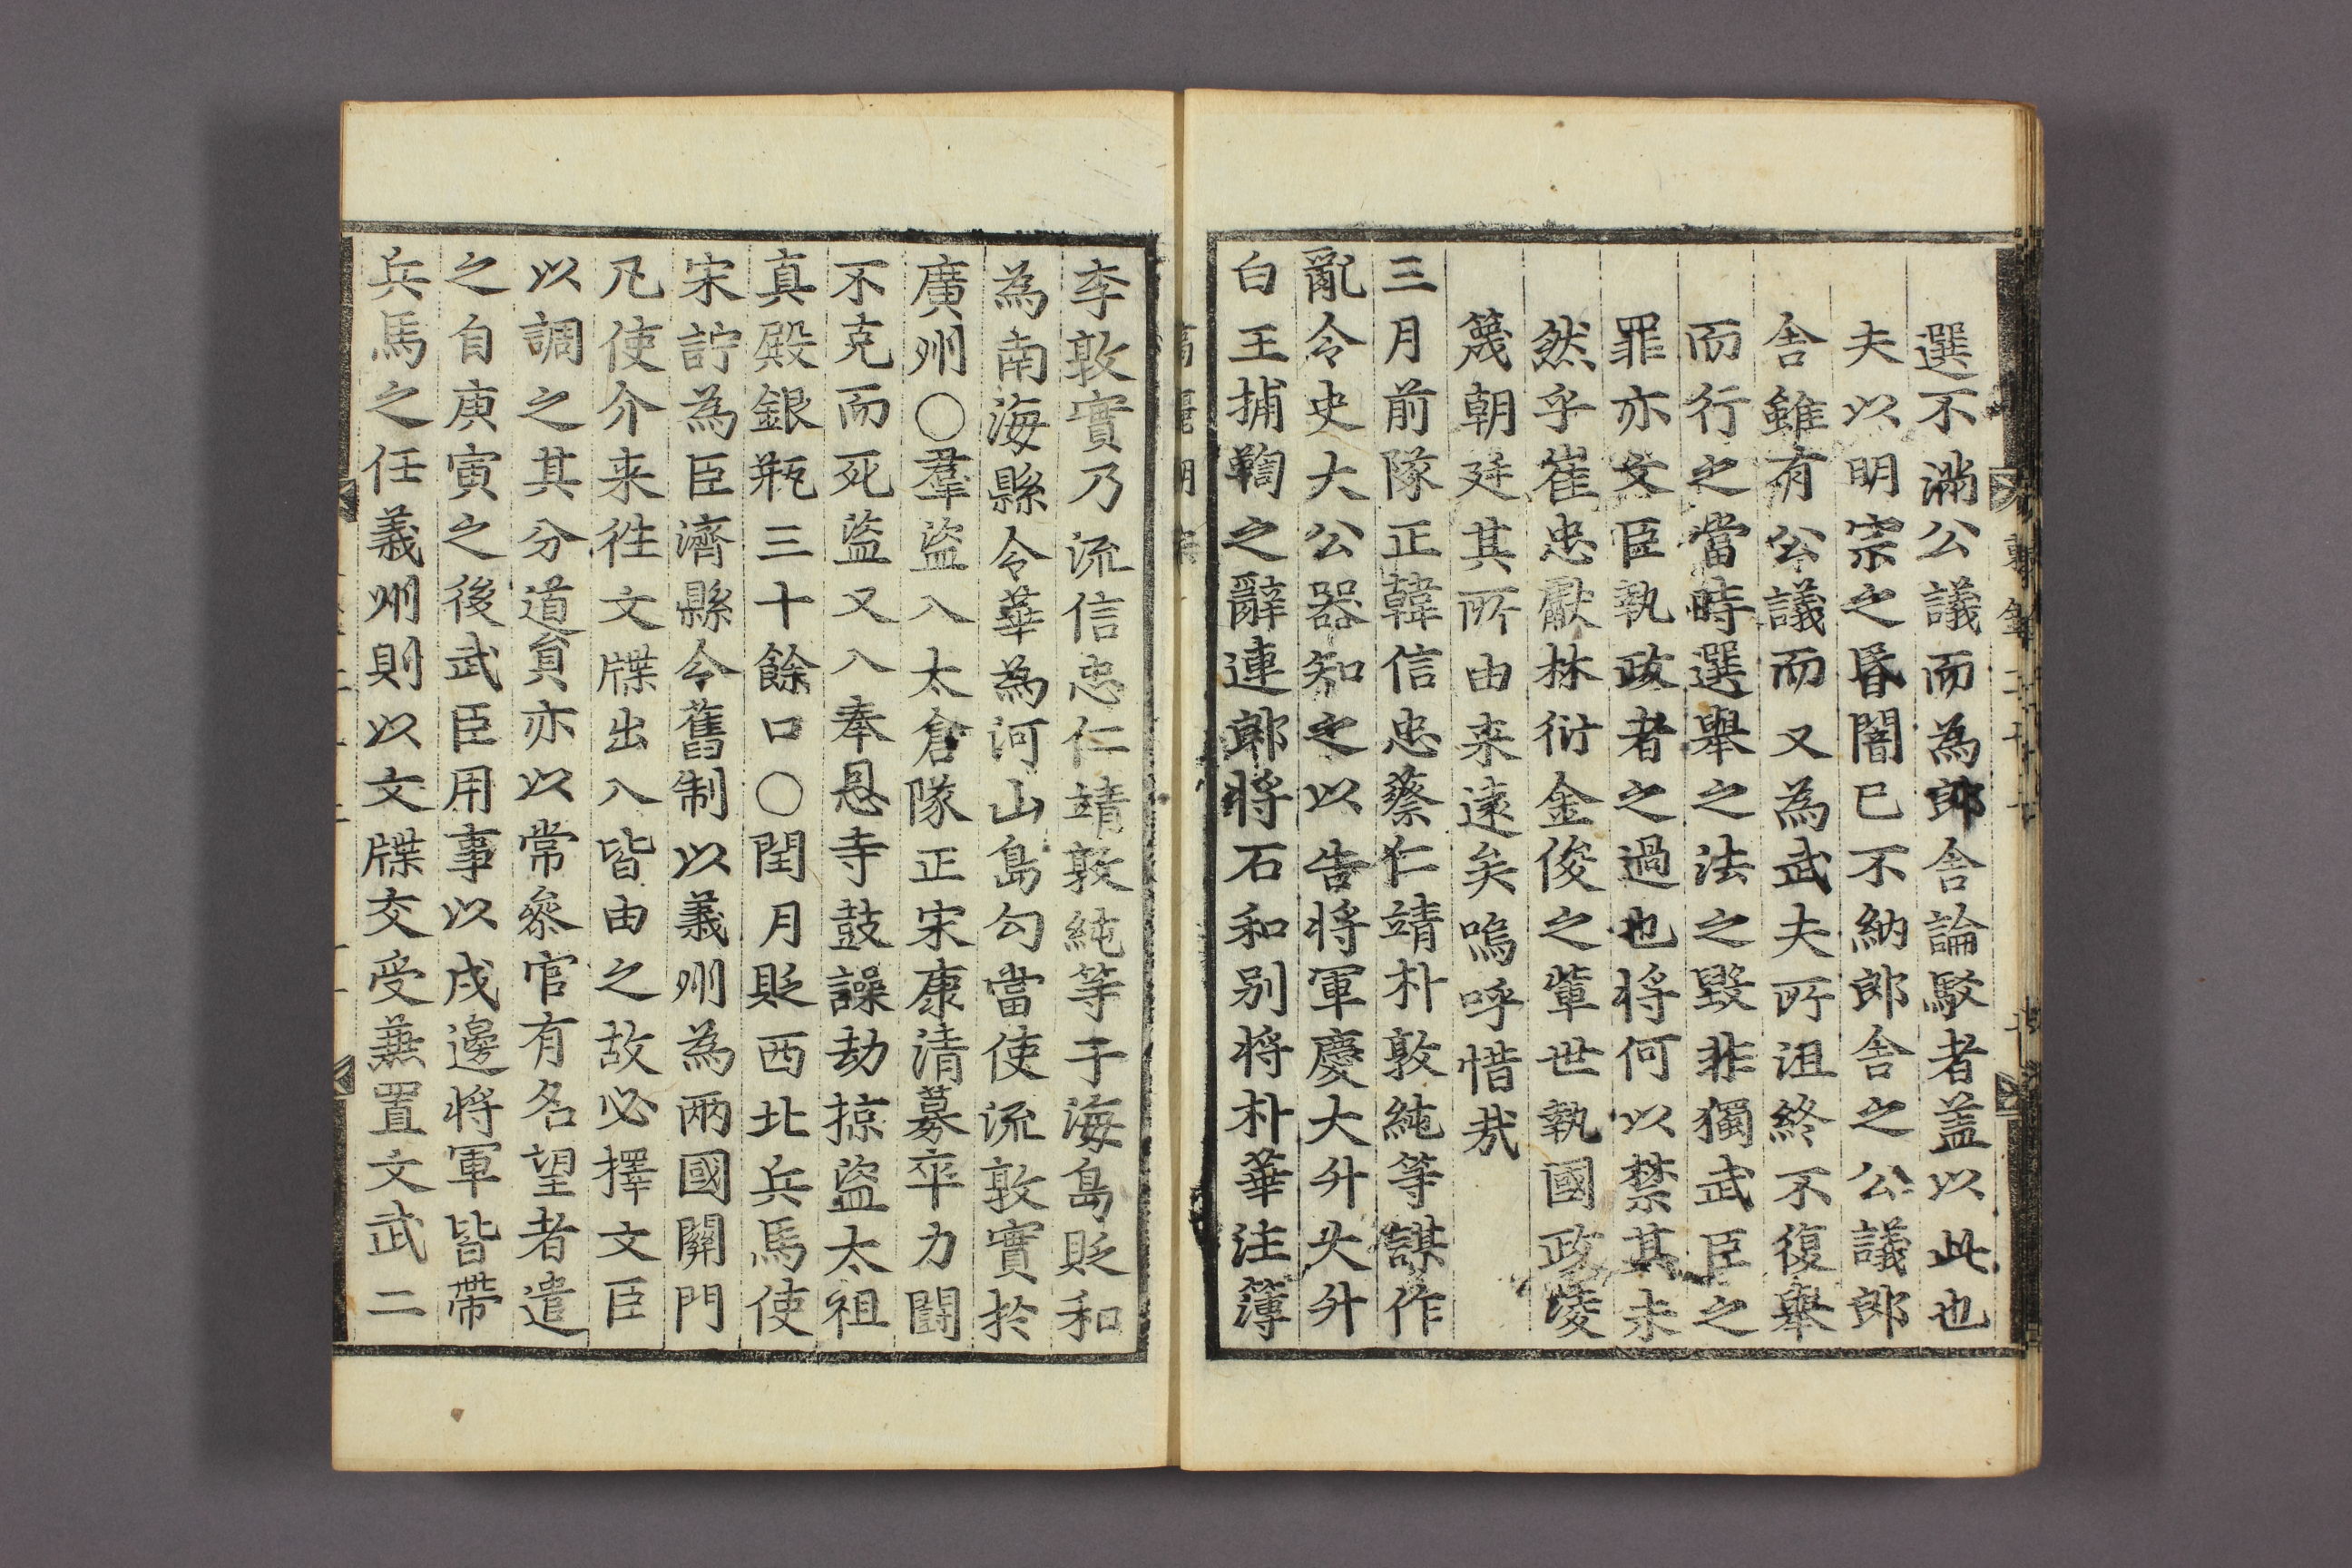 選不滿公議而為郎舍論駁者盖以此也
夫以明宗之昬闇已不納郎舍之公議郎
舍雖有公議而又為武夫所沮終不復舉
而行之當時選舉之法之毀非獨武臣之
罪亦文臣執政者之過也将何以禁其未
然乎崔忠獻林衍金俊之輩世執國政凌
篾朝廷其所由来遠矣嗚呼惜㦲
三月前隊正韓信忠蔡仁靖朴敦純等謀作
亂令史大公器知之以告将軍慶大升大升
白王捕鞫之辭連郎将石和别将朴華注簿
李敦實乃流信忠仁靖敦純等于海島貶和
為南海縣令華為河山島勾當使流敦實於
廣州○羣盜入太倉隊正宋康清募卒力闘
不克而死盜又入奉恩寺鼓譟劫掠盜太祖
真殿銀瓶三十餘口○閏月貶西北兵馬使
宋詝為臣濟縣令舊制以義州為兩國關門
凡使介来徃文牒出入皆由之故必擇文臣
以調之其分道負亦以常叅官有名望者遣
之自庚寅之後武臣用事以戍邊将軍皆帶
兵馬之任義州則以文牒交受兼置文武二